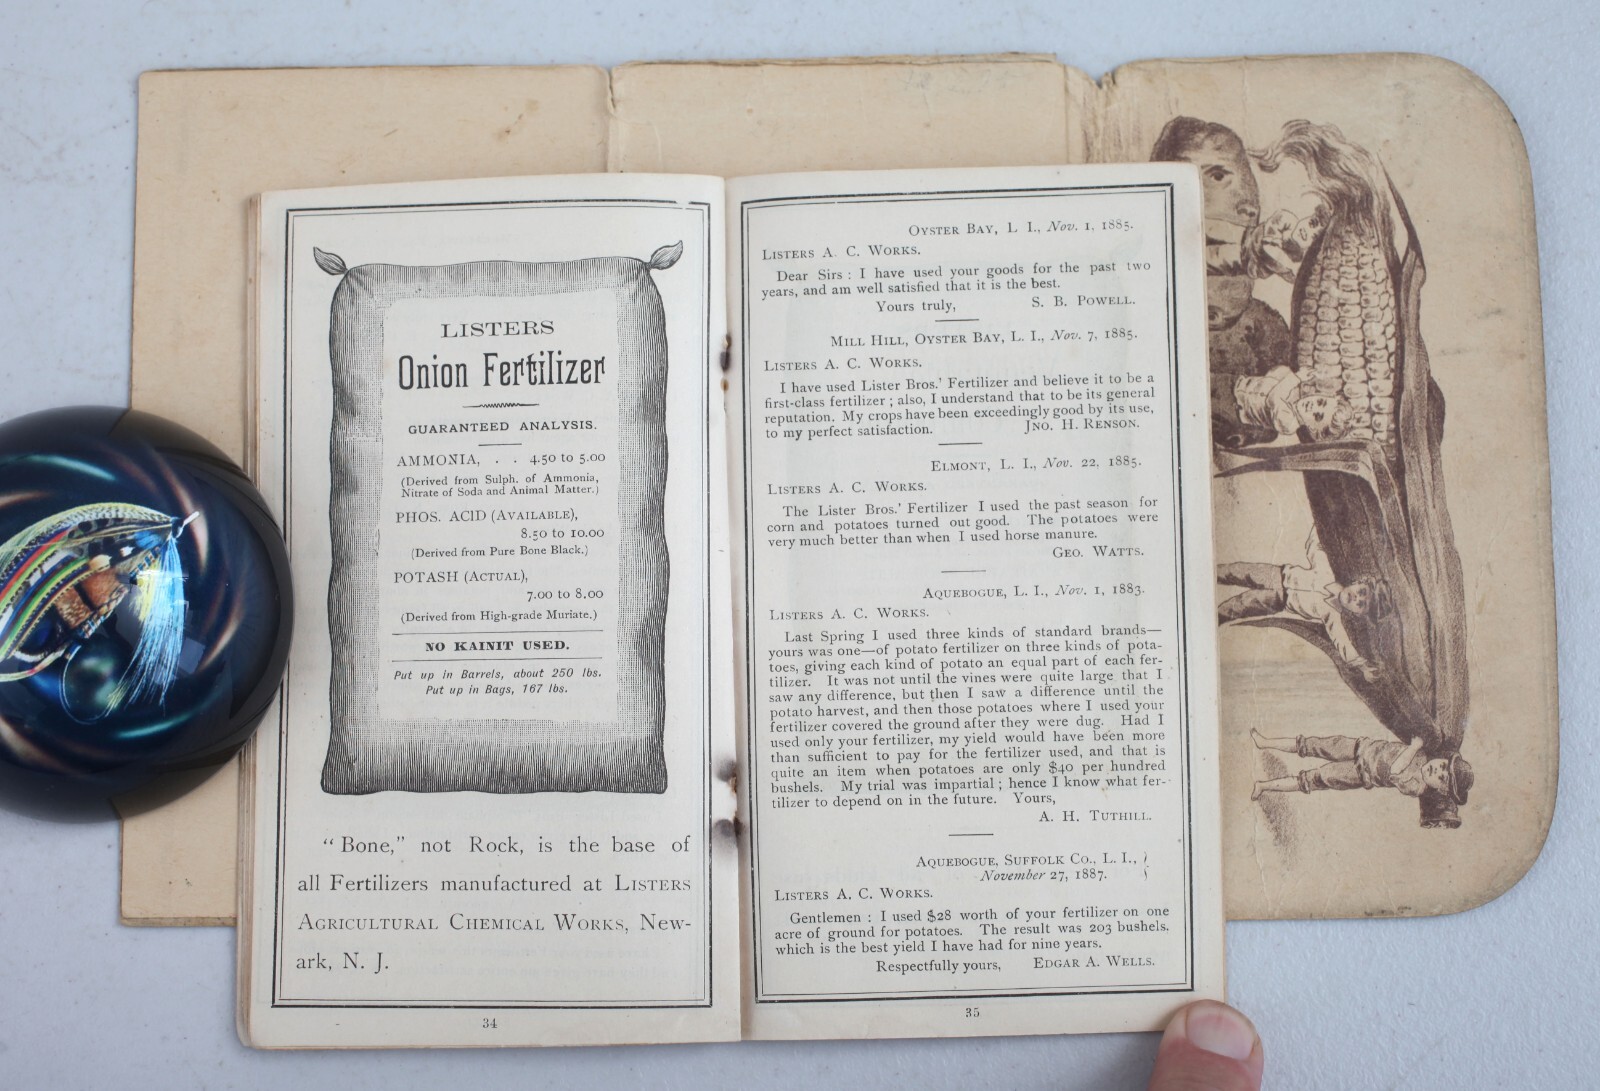 LISTERS
Onion Fertilizer
GUARANTEED ANALYSIS.
AMMONIA, . . 4.50 to 5.00
(Derived from Sulph. of Ammonia,
Nitrate of Soda and Animal Matter.)
PHOS. ACID (AVAILABLE),
8.50 to 10.00
(Derived from Pure Bone Black.)
POTASH (ACTUAL),
7.00 to 8.00
(Derived from High-grade Muriate.)
NO KAINIT USED.
Put up in Barrels, about 250 lbs.
Put up in Bags, 167 lbs.
"Bone," not Rock, is the base of
all Fertilizers manufactured at LISTERS
AGRICULTURAL CHEMICAL WORKS, New-
ark, N. J.
34
OYSTER BAY, L I., Nov. 1, 1885.
LISTERS A. C. WORKS.
Dear Sirs : I have used your goods for the past two
years, and am well satisfied that it is the best.
Yours truly, S. B. POWELL.
MILL HILL, OYSTER BAY, L. I., Nov. 7, 1885.
LISTERS A. C. WORKS.
I have used Lister Bros.' Fertilizer and believe it to be a
first-class fertilizer ; also, I understand that to be its general
reputation. My crops have been exceedingly good by its use,
to my perfect satisfaction. JNO. H. RENSON.
ELMONT, L. I., Nov. 22, 1885.
LISTERS A. C. WORKS.
The Lister Bros.' Fertilizer I used the past season for
corn and potatoes turned out good. The potatoes were
very much better than when I used horse manure.
GEO. WATTS.
AQUEBOGUE, L. I., Nov. 1, 1883.
LISTERS A. C. WORKS.
Last Spring I used three kinds of standard brands—
yours was one—of potato fertilizer on three kinds of pota-
toes, giving each kind of potato an equal part of each fer-
tilizer. It was not until the vines were quite large that I
saw any difference, but then I saw a difference until the
potato harvest, and then those potatoes where I used your
fertilizer covered the ground after they were dug. Had I
used only your fertilizer, my yield would have been more
than sufficient to pay for the fertilizer used, and that is
quite an item when potatoes are only $40 per hundred
bushels. My trial was impartial ; hence I know what fer-
tilizer to depend on in the future. Yours,
A. H. TUTHILL.
AQUEBOGUE, SUFFOLK CO., L. I.,
November 27, 1887.
LISTERS A. C. WORKS.
Gentlemen : I used $28 worth of your fertilizer on one
acre of ground for potatoes. The result was 203 bushels,
which is the best yield I have had for nine years.
Respectfully yours, EDGAR A. WELLS.
35